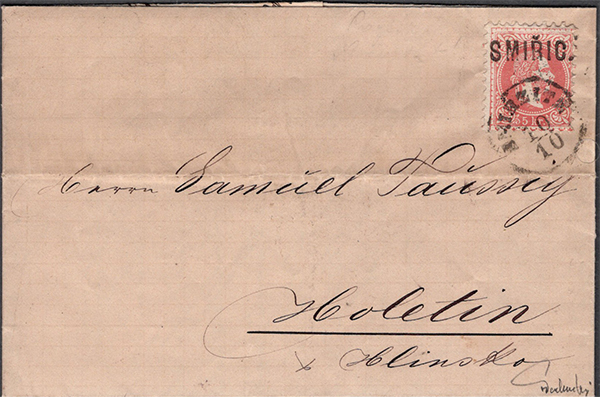 SMIŘIC.
5
10
10
Herrn Samuel Taussig
Holetin
Hlinsko